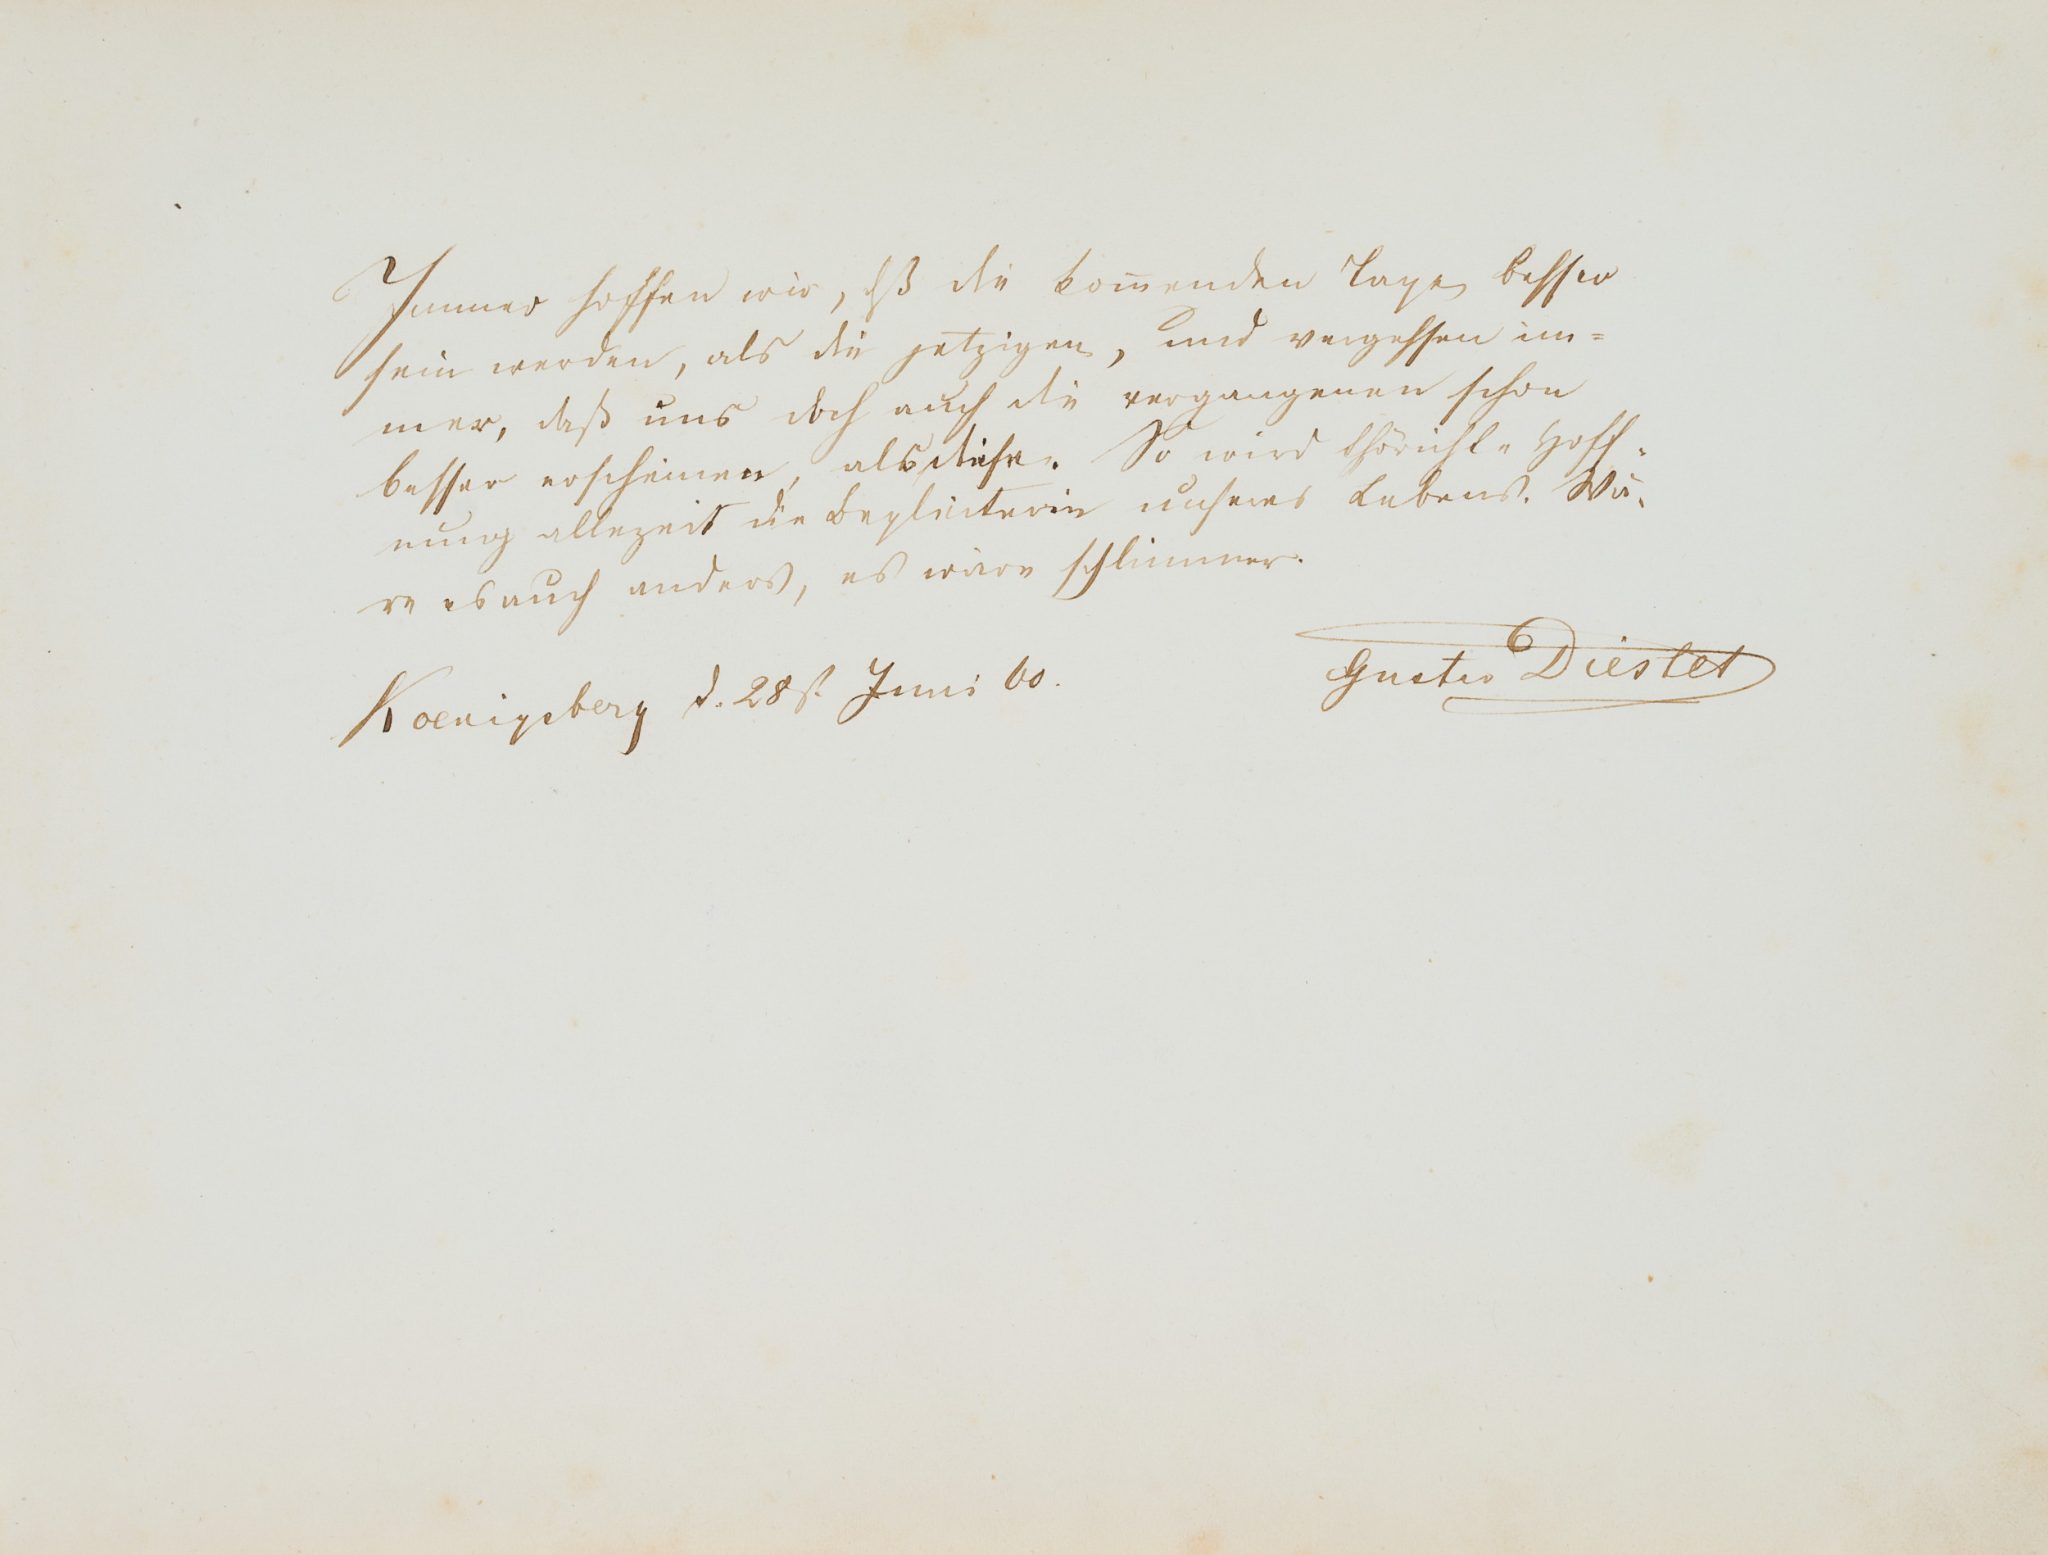 Immer hoffen wir, dß die kom̅enden Tage besser
sein werden, als die jetzigen, und vergessen im=
mer, daß uns doch auch die vergangenen schon
besser erscheinen, als diese. So wird thörichte Hoff-
nung allezeit die Begleiterin unseres Lebens. Wä-
re es auch anders, es wäre schlimmer.
Koenigsberg d. 28st. Juni 60. Gustav Diestel